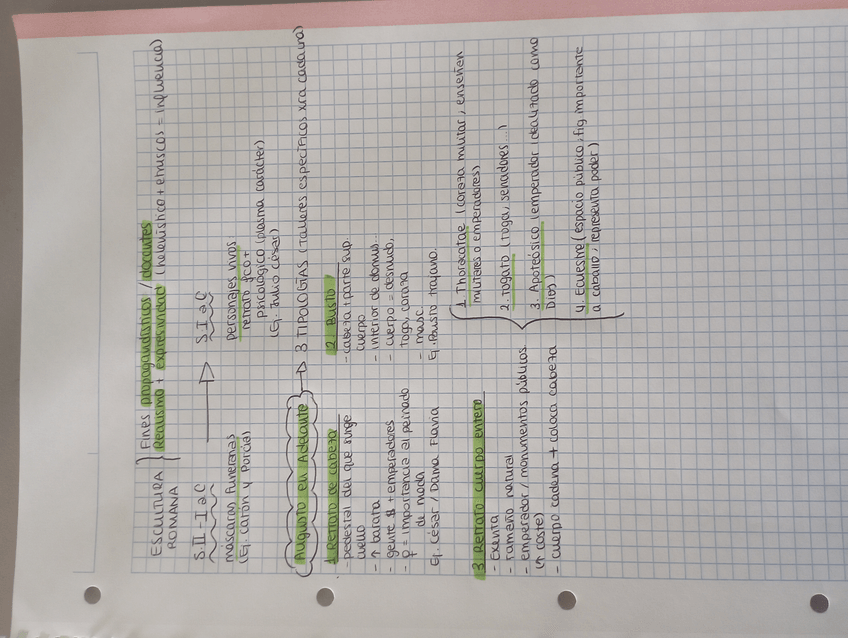 ESCULTURA ROMANA } Fines propagandísticos / docentes
Realismo + expresividad (helenístico + etruscos = influencia)
S.II - I a C → S.I a C
máscaras funerarias
(Ej. catón y Porcia)
Personajes vivos
retrato fco +
psicológico (plasma carácter)
(Ej. Julio César)
Augusto en Adelante → 3 TIPOLOGÍAS (talleres específicos xra cada una)
1. Retrato de cabeza
- pedestal del que surge
cuello
- ↑ barata
- gente $ + emperadores
- ♀ = importancia al peinado
↑ de moda
Ej. César / Dama Flavia
2. Busto
- cabeza + parte sup.
cuerpo
- interior de domus...
- cuerpo = desnudo,
toga, coraza
- masc.
Ej. Busto trajano.
3. Retrato cuerpo entero
- Exenta
- Tamaño natural
- emperador / monumentos públicos.
(↑ coste)
- cuerpo cadena + coloca cabeza
1. Thoracatae (coraza militar, enseñen
militares o emperadores)
2. Togato (toga, senadores...)
3. Apoteósico (emperador idealizado como
Dios)
4. Ecuestre (espacio público, fig. importante
a caballo, representa poder)